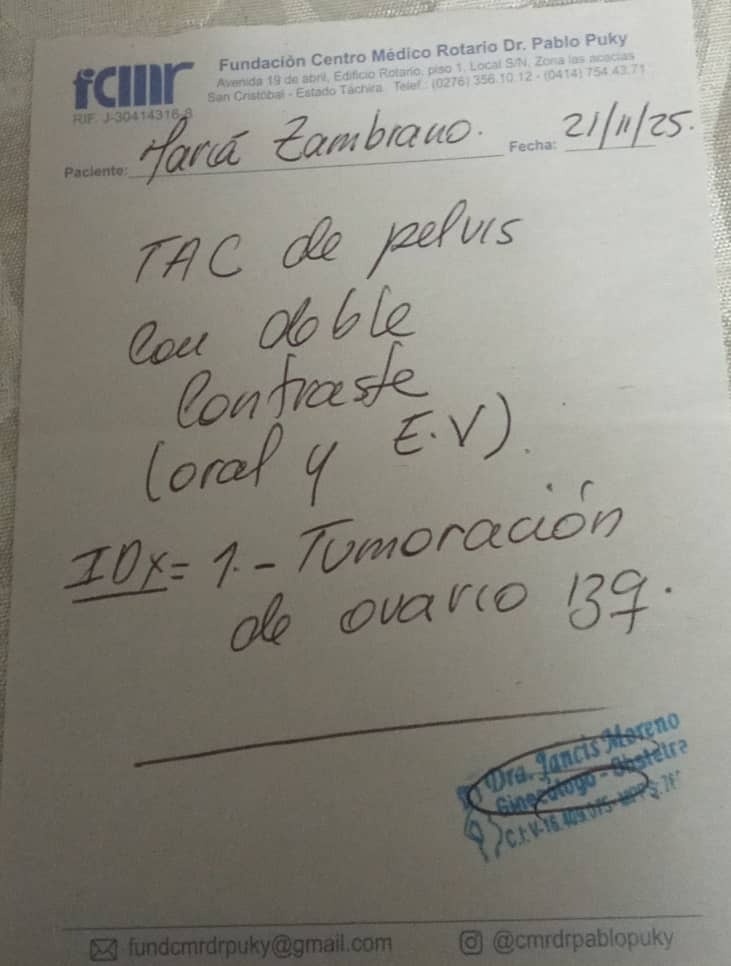 fcmr
RIF. J-30414316-8
Fundación Centro Médico Rotario Dr. Pablo Puky
Avenida 19 de abril, Edificio Rotario, piso 1, Local S/N, Zona las acacias
San Cristóbal - Estado Táchira. Telef.: (0276) 356.10.12 - (0414) 754.43.71
Paciente: María Zambrano. Fecha: 21/11/25.
TAC de pelvis
con doble
contraste
(oral y E.V).
IDx= 1.- Tumoración
de ovario
Dra. Jancis Moreno
Ginecólogo - Obstetra
fundcmrdrpuky@gmail.com @cmrdrpablopuky